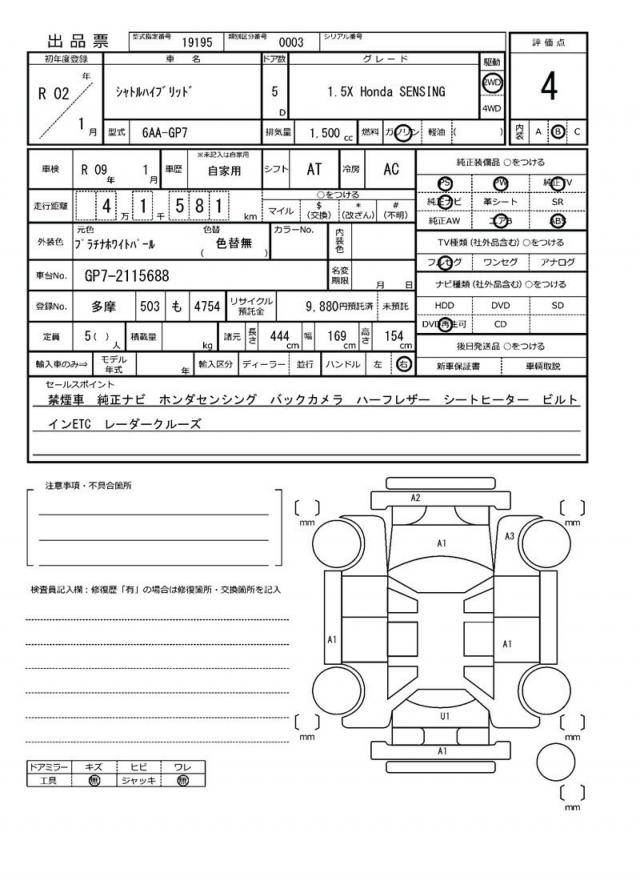 出品票 型式指定番号 19195 類別区分番号 0003 シリアル番号
評価点
4
初年度登録 車名 ドア数 グレード 駆動
R 02 年 1 月
ｼｬﾄﾙﾊｲﾌﾞﾘｯﾄﾞ 5 D 1.5X Honda SENSING 2WD 4WD
型式 6AA-GP7 排気量 1.500 cc 燃料 ガソリン 軽油 ( )
内装 A B C
車検 R 09 年 1 月 車歴 ※未記入は自家用 自家用 シフト AT 冷房 AC
走行距離 4 万 1 千 5 8 1 km
○をつける
マイル $(交換) *(改ざん) #(不明)
外装色 元色 ﾌﾟﾗﾁﾅﾎﾜｲﾄﾊﾟｰﾙ 色替 ( 色替無 ) カラーNo. 内装色
車台No. GP7-2115688 名変期限 月 日
登録No. 多摩 503 も 4754 リサイクル預託金 9,880円預託済 未預託
定員 5( )人 積載量 kg 諸元 長さ 444 cm 幅 169 cm 高さ 154 cm
輸入車のみ⇨ モデル年式 年 輸入区分 ディーラー 並行 ハンドル 左 右
純正装備品 ○をつける
PS PW 純正TV
純正ナビ 革シート SR
純正AW エアB ABS
TV種類(社外品含む)○をつける
フルセグ ワンセグ アナログ
ナビ種類(社外品含む)○をつける
HDD DVD SD
DVD再生可 CD
後日発送品 ○をつける
新車保証書 車輌取説
セールスポイント
禁煙車 純正ナビ ホンダセンシング バックカメラ ハーフレザー シートヒーター ビルト
インETC レーダークルーズ
注意事項・不具合箇所
検査員記入欄：修復歴「有」の場合は修復箇所・交換箇所を記入
ドアミラー キズ ヒビ ワレ
工具 無 ジャッキ 無
A2
[ ] mm
[ ] mm
A1
A3
A1
A1
U1
A1
[ ] mm
[ ] mm
[ ] mm